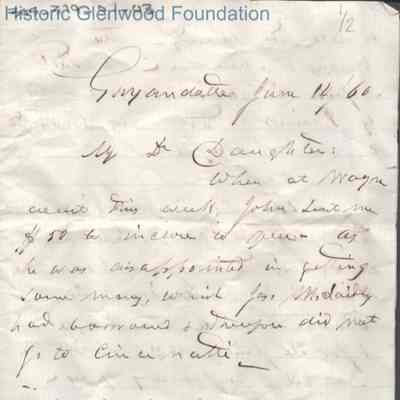 Historic Glenwood Foundation
1/2
Guyandotte June 14, 60.
My Dr Daughter:
When at Wayne
court this week, John sent me
$50 to inclose to you - as
he was disappointed in geting
some money, which Jas
had borrowed & therefore did not
go to Cincinnatti -